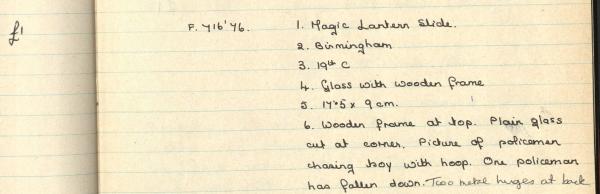 £1
F. 716'76.
1. Magic Lantern Slide.
2. Birmingham
3. 19th C
4. Glass with wooden frame
5. 17·5 x 9 cm.
6. Wooden frame at top. Plain glass
cut at corner. Picture of policeman
chasing boy with hoop. One policeman
has fallen down. Two metal hinges at back